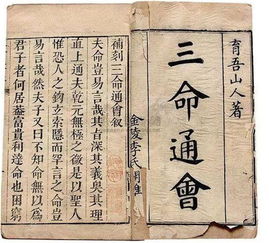 育吾山人著
三命通會
金陵李氏
補刻三命通會敘
夫命豈易言哉其旨深其義奥其理
直上通夫乾元無極之後是以聖人
惟恐人之鈎玄索隱而罕言之命豈
易言哉然夫子又曰不知命無以爲
君子者何居蓋富貴利達命也困窮